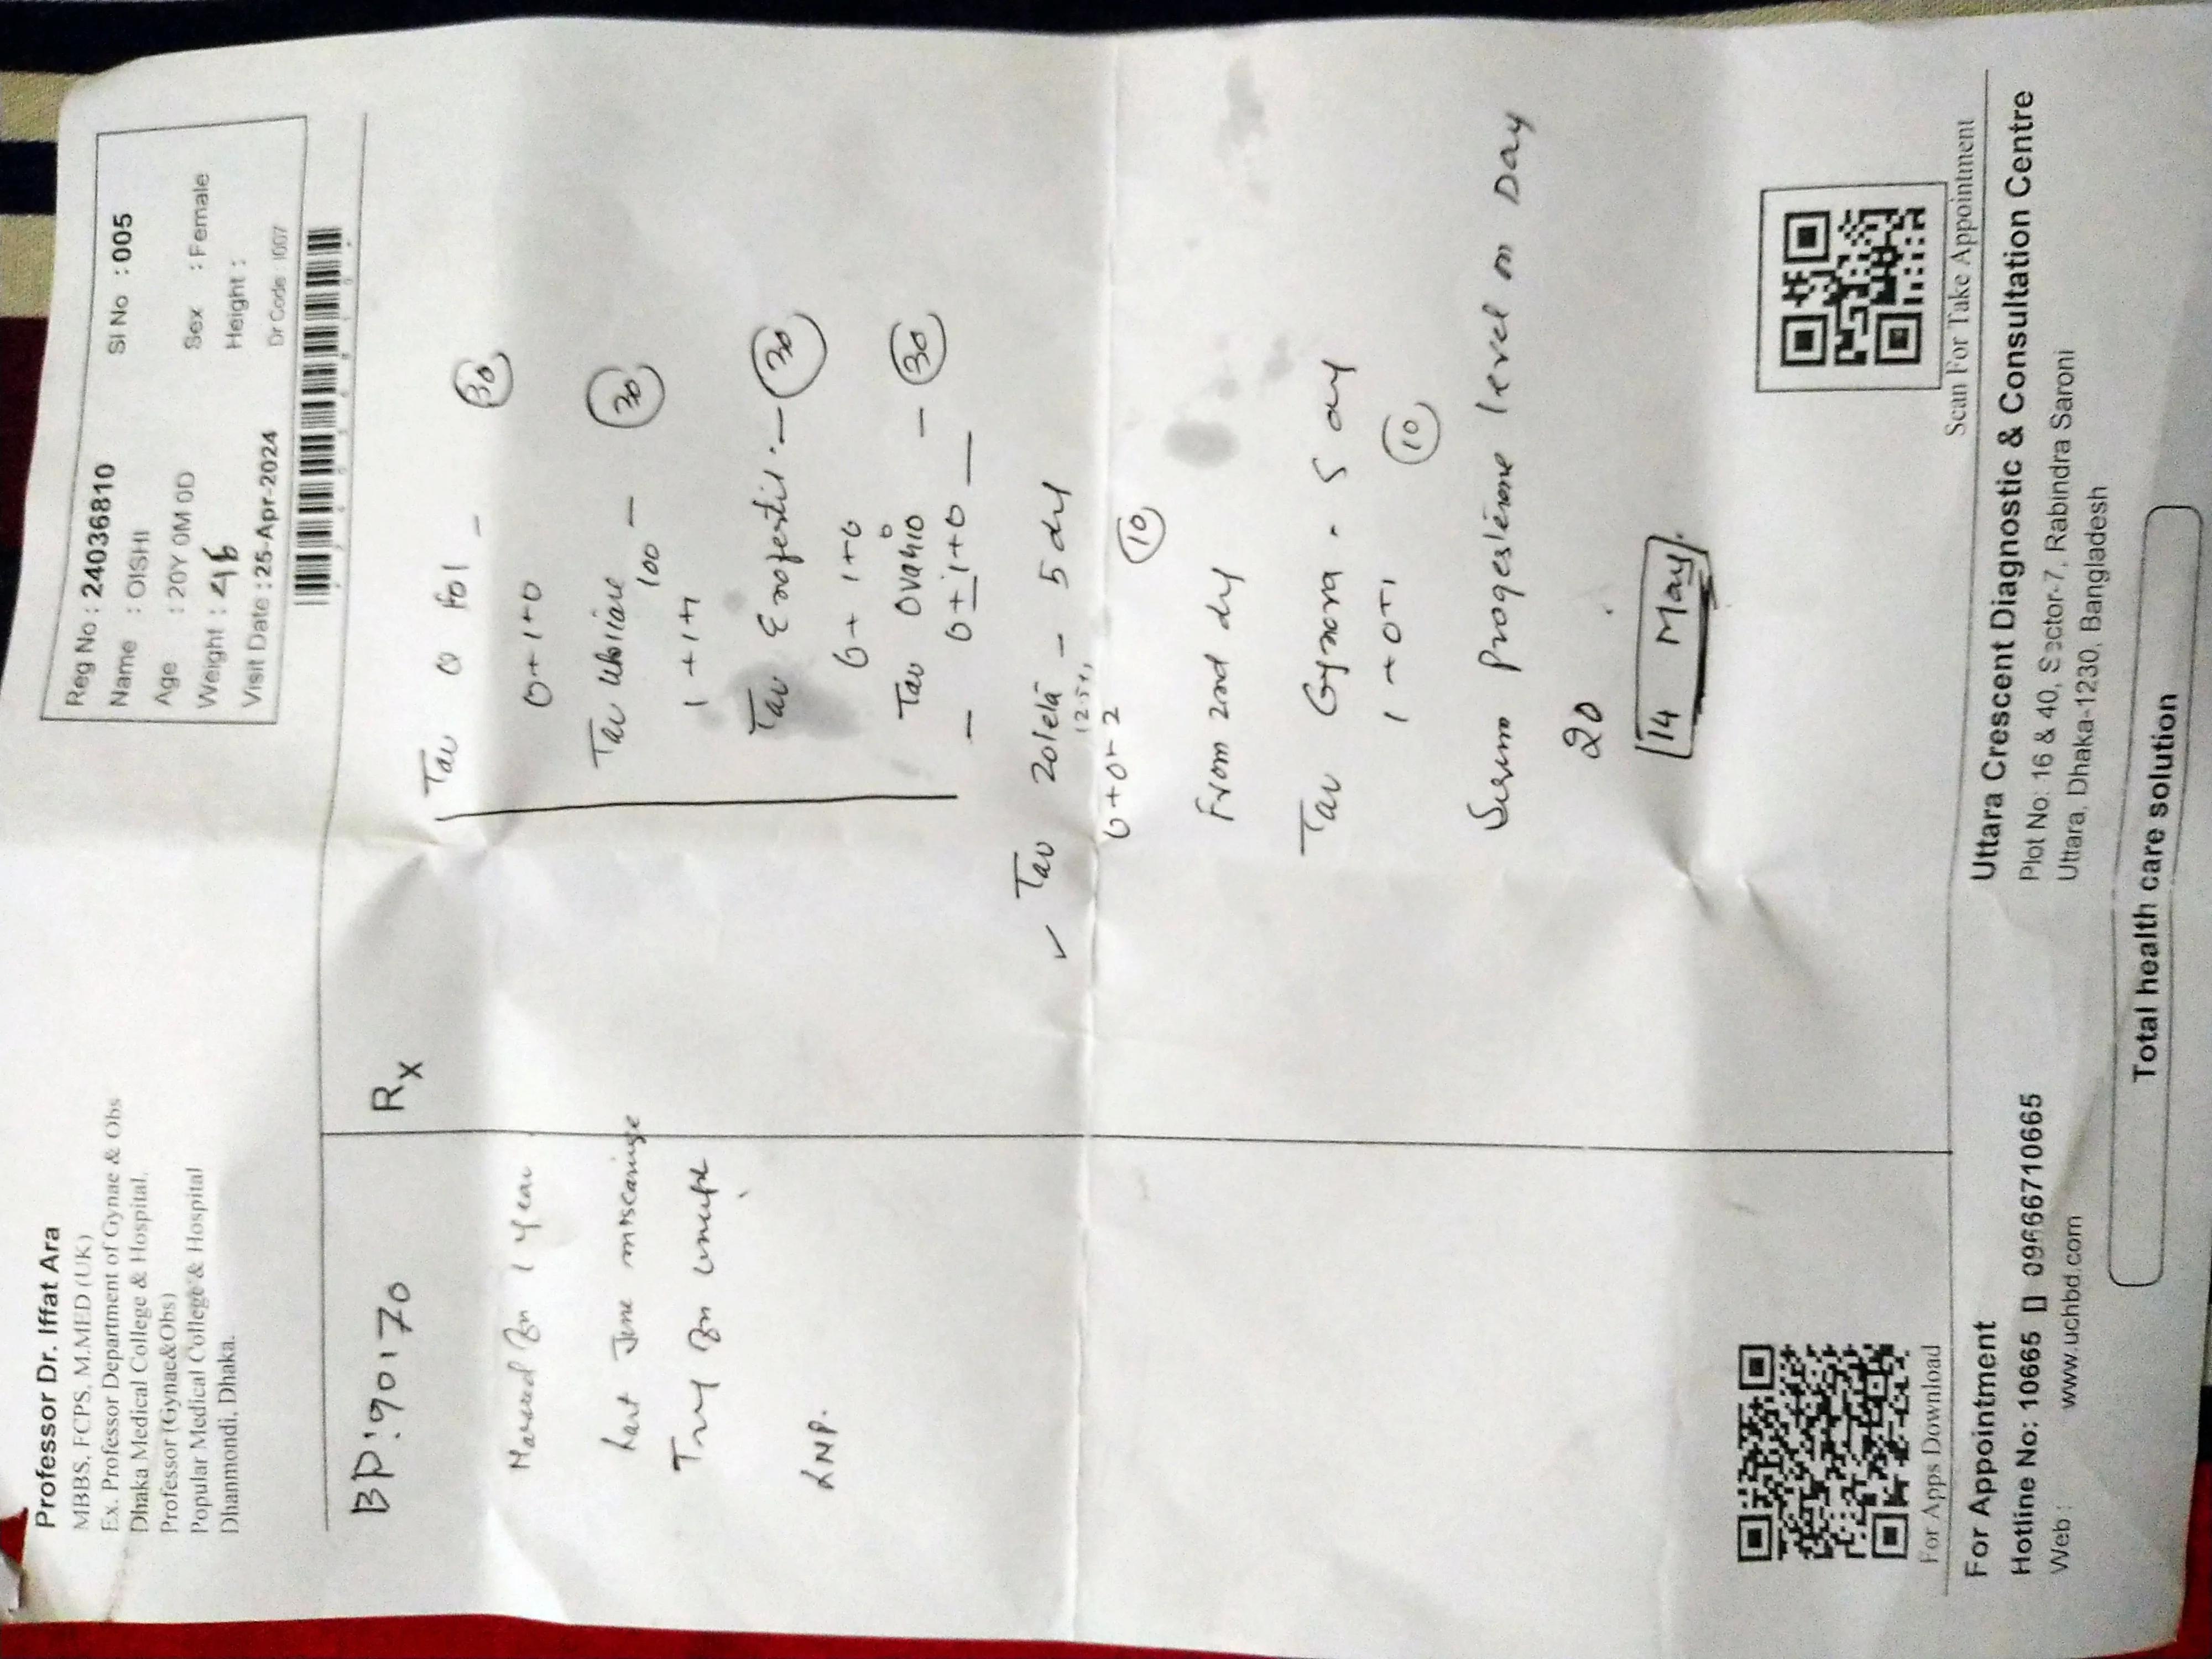 Professor Dr. Iffat Ara
MBBS, FCPS, M.MED (UK)
Ex. Professor Department of Gynae & Obs
Dhaka Medical College & Hospital.
Professor (Gynae&Obs)
Popular Medical College & Hospital
Dhanmondi, Dhaka.
Reg No : 24036810 SI No : 005
Name : OISHI
Age : 20Y 0M 0D Sex : Female
Weight : 46 Height :
Visit Date : 25-Apr-2024 Dr Code : 1007
BP: 90170
Married for 1 year
Last June miscarriage
Try for
LMP.
Rx
Tab Fol - 30
0+1+0
Tab 100 - 30
1+1+1
Tab - 30
0+1+0
Tab Ovahio - 30
- 0+1+0 -
✓ Tab Zoleta - 5 day
0+0+2 10
From 2nd day
Tab Gynora . 5 day
1+0+1 10
Serum Progesterone level on Day
20
14 May
For Apps Download
Scan For Take Appointment
For Appointment
Hotline No: 10665 09666710665
Web : www.uchbd.com
Uttara Crescent Diagnostic & Consultation Centre
Plot No: 16 & 40, Sector-7, Rabindra Saroni
Uttara, Dhaka-1230, Bangladesh
Total health care solution